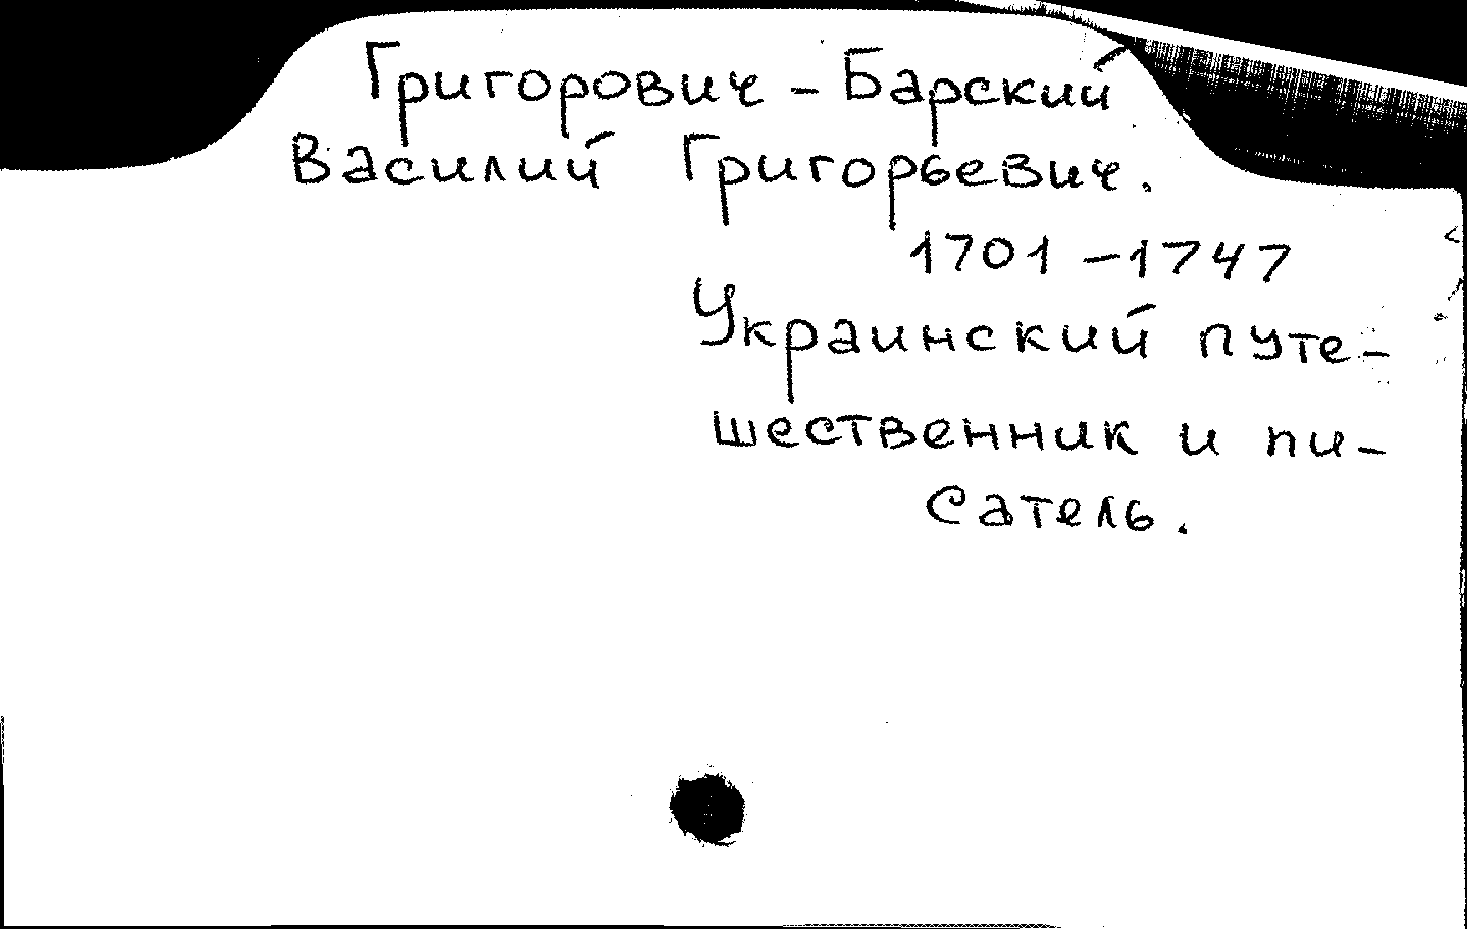 Григорович - Барский
Василий Григорьевич.
1701 - 1747
Украинский путе-
шественник и пи-
сатель.